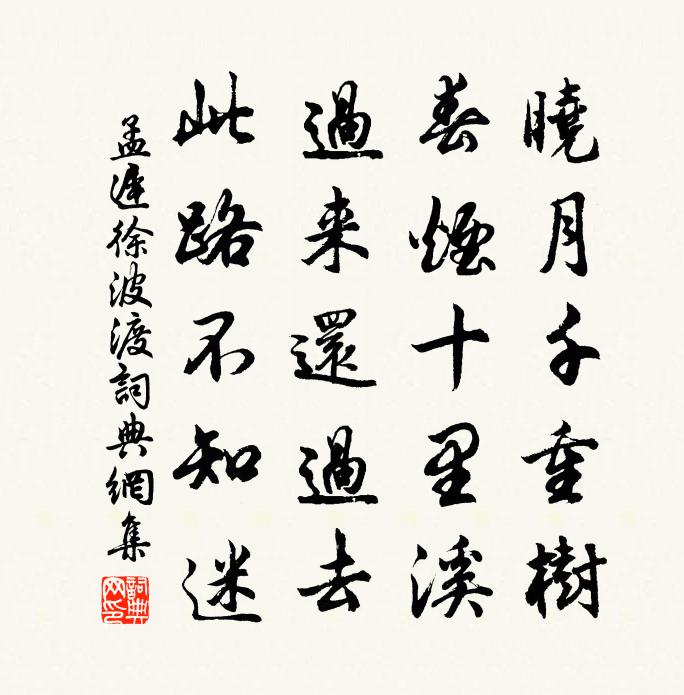 曉月千重樹
春煙十里溪
過來還過去
此路不知迷
孟遲徐波渡詞典網集
詞典網印